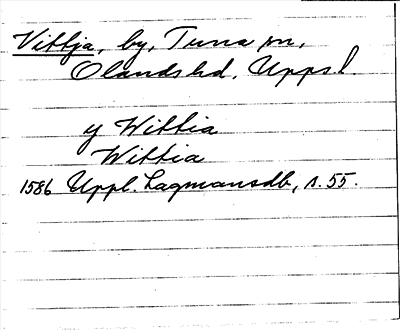 Vittja, by, Tuna sn,
Olands hd, Upps. l.
y Wittia
Wittia
1586 Uppl. Lagmansdb, s. 55.